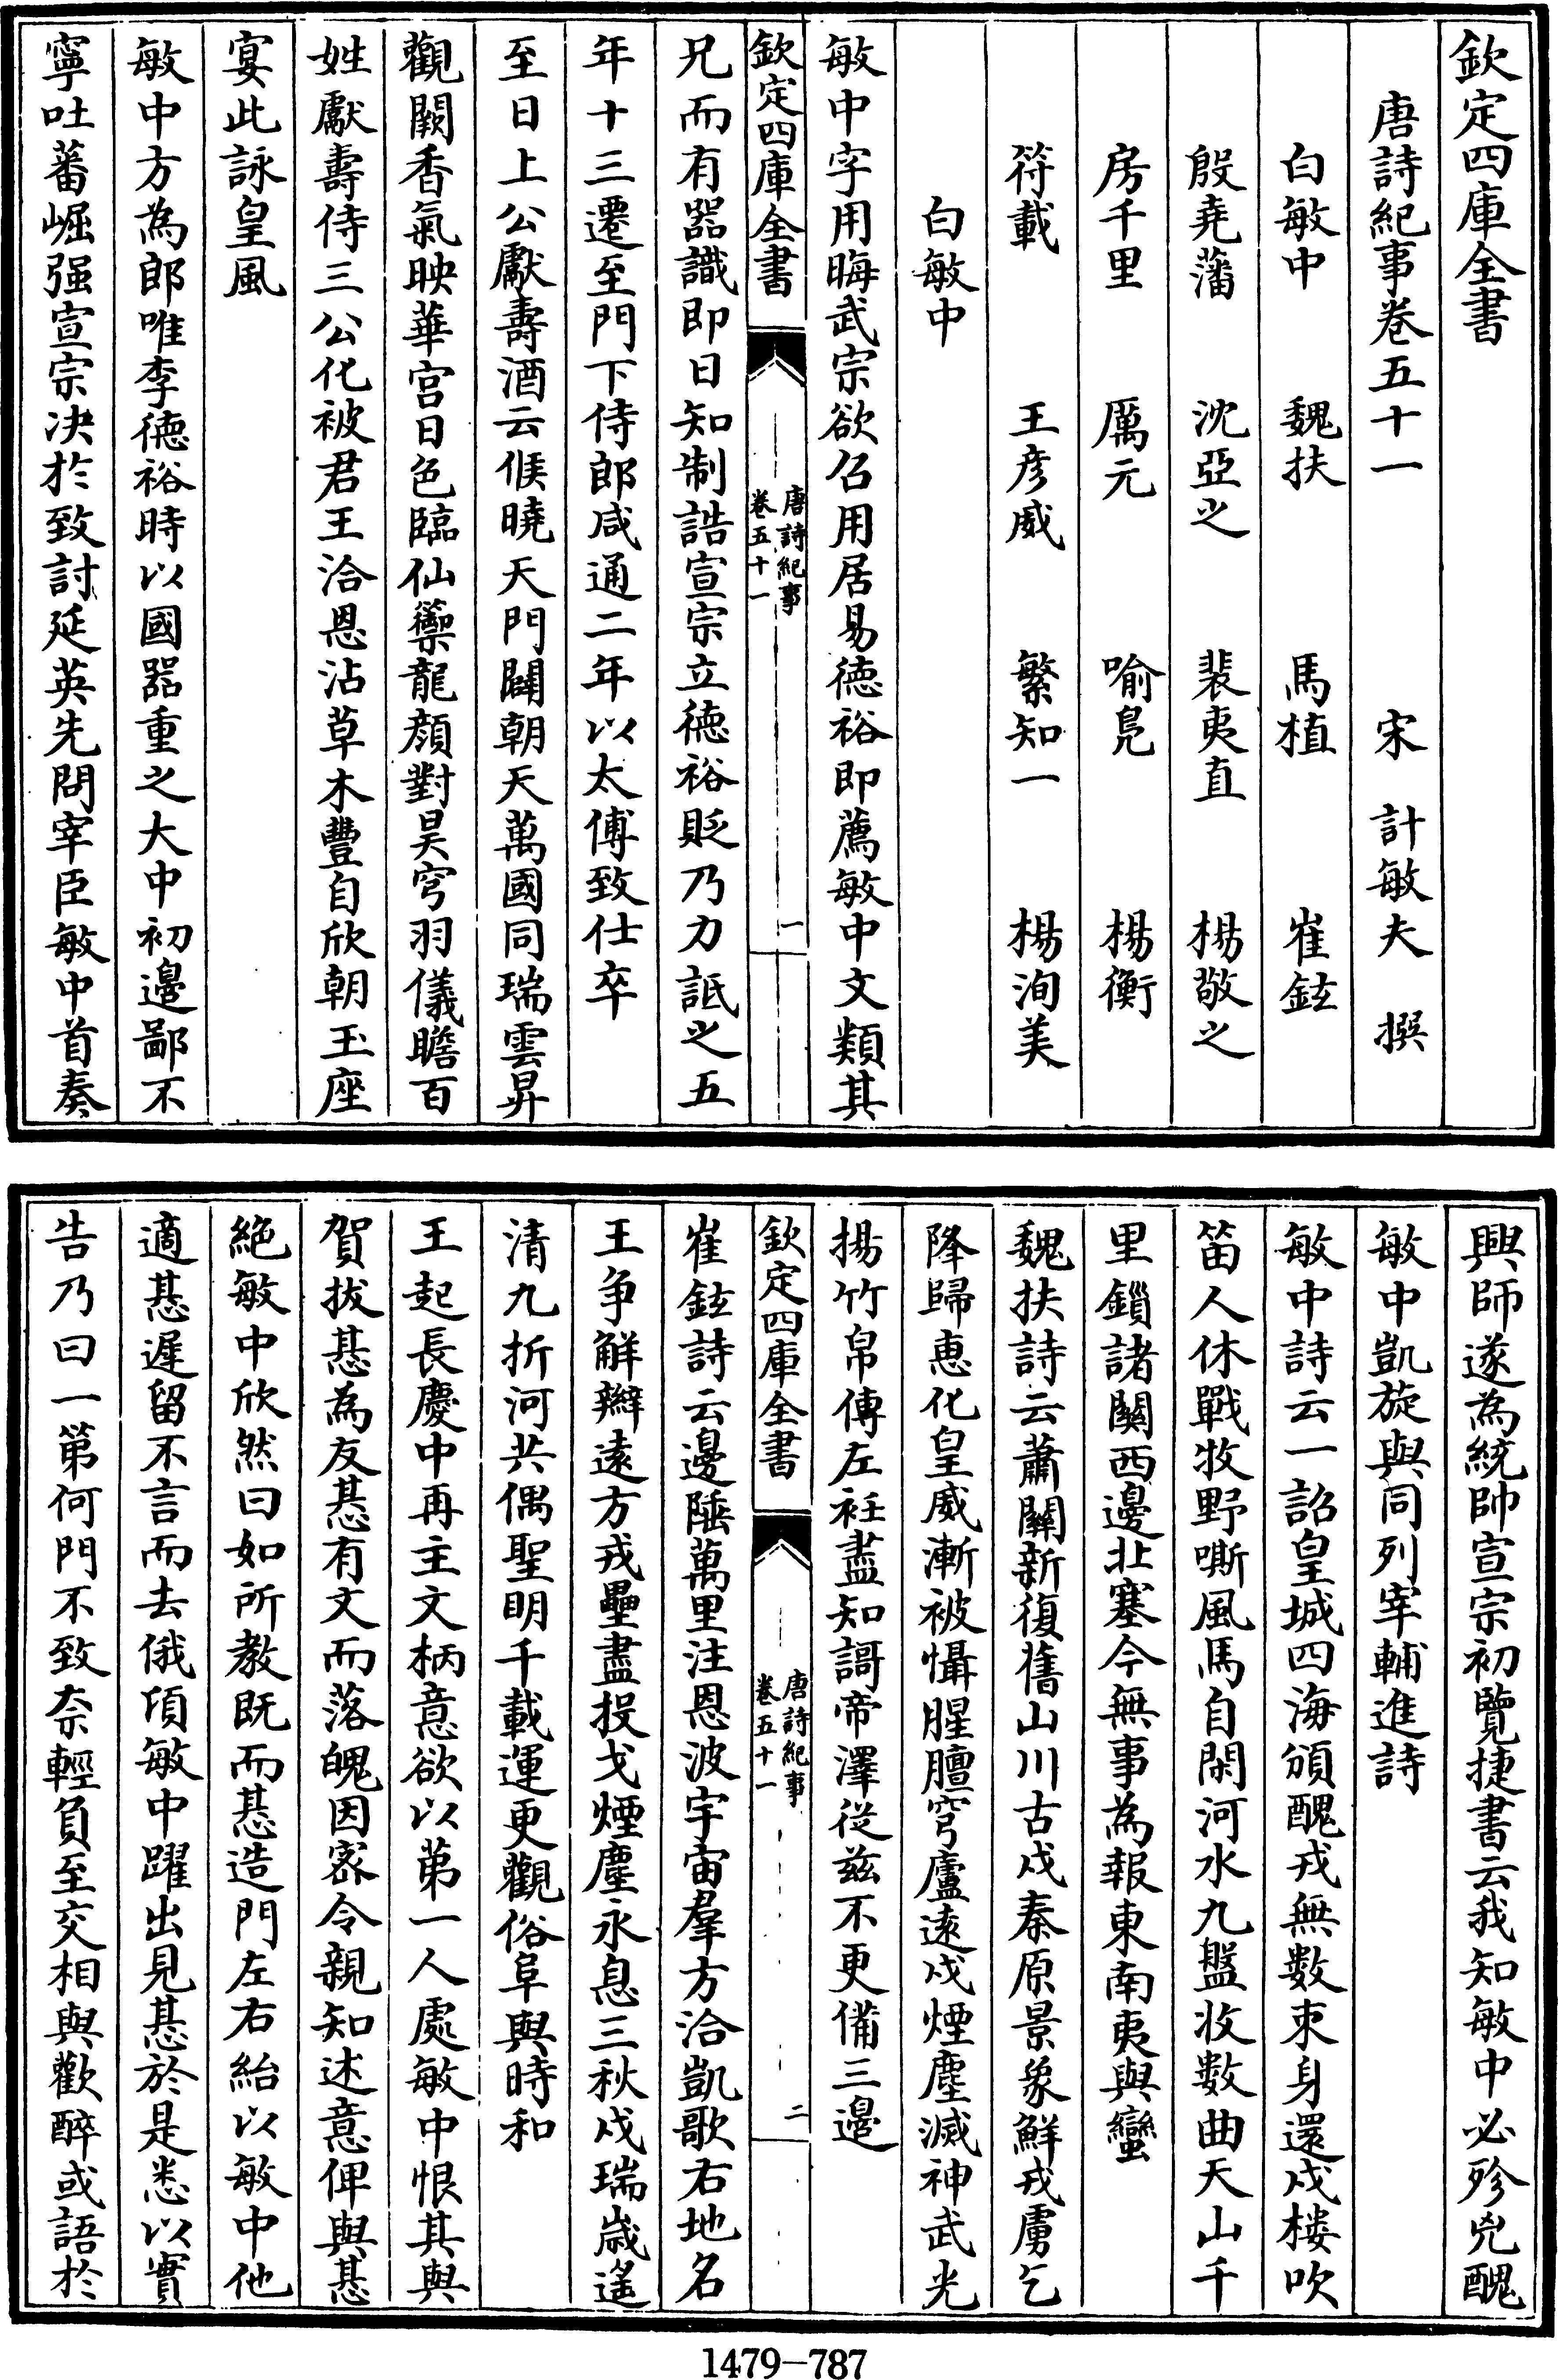 欽定四庫全書
唐詩紀事卷五十一 宋 計敏夫 撰
白敏中 魏扶 馬植 崔鉉
殷堯藩 沈亞之 裴夷直 楊敬之
房千里 厲元 喻鳧 楊衡
符載 王彦威 繁知一 楊洵美
白敏中
敏中字用晦武宗欲召用居易德裕即薦敏中文類其
欽定四庫全書
唐詩紀事
卷五十一
一
兄而有器識即日知制誥宣宗立德裕貶乃力詆之五
年十三遷至門下侍郎咸通二年以太傅致仕卒
至日上公獻壽酒云候曉天門闢朝天萬國同瑞雲昇
觀闕香氣映華宫日色臨仙籞龍顔對昊穹羽儀瞻百
姓獻壽侍三公化被君王洽恩沾草木豐自欣朝玉座
宴此詠皇風
敏中方為郎唯李德裕時以國器重之大中初邉鄙不
寧吐蕃崛强宣宗决於致討延英先問宰臣敏中首奏
興師遂為統帥宣宗初覽捷書云我知敏中必殄兇醜
敏中凱旋與同列宰輔進詩
敏中詩云一詔皇城四海頒醜戎無數束身還戍樓吹
笛人休戰牧野嘶風馬自閑河水九盤收數曲天山千
里鎖諸關西邊北塞今無事為報東南夷與蠻
魏扶詩云蕭關新復舊山川古戍秦原景象鮮戎虜乞
降歸惠化皇威漸被懾腥膻穹廬逺戍煙塵滅神武光
揚竹帛傳左衽盡知謌帝澤從兹不更備三邉
欽定四庫全書
唐詩紀事
卷五十一
二
崔鉉詩云邊陲萬里注恩波宇宙羣方洽凱歌右地名
王争解辮遠方戎壘盡投戈煙塵永息三秋戍瑞嵗遙
清九折河共偶聖明千載運更觀俗阜與時和
王起長慶中再主文柄意欲以第一人處敏中恨其與
賀拔惎為友惎有文而落魄因宻令親知述意俾與惎
絶敏中欣然曰如所教既而惎造門左右紿以敏中他
適惎遲留不言而去俄頃敏中躍出見惎於是悉以實
告乃曰一第何門不致奈輕負至交相與歡醉或語於
1479-787